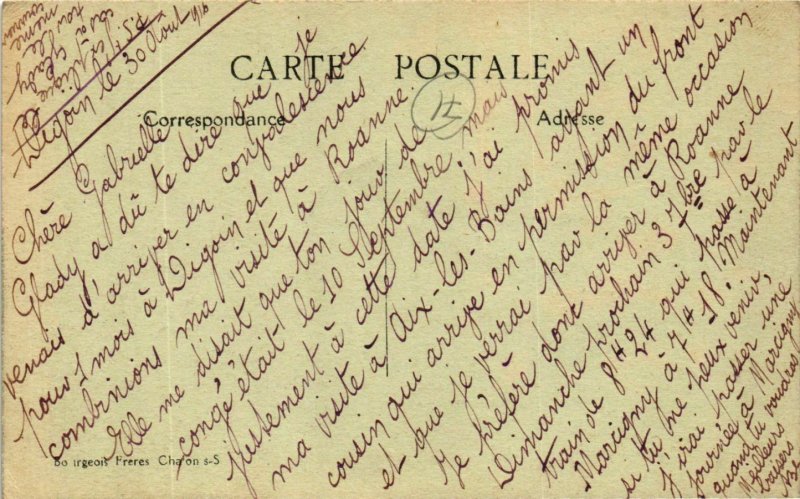 CARTE POSTALE
Correspondance
Adresse
15
Digoin le 30 Août 1916
Chère Gabrielle
Glady a dû te dire que je
venais d'arriver en convalescence
pour 1 mois à Digoin et que nous
combinions ma visite à Roanne.
Elle me disait que ton jour de
congé était le 10 Septembre mais
justement à cette date j'ai promis
ma visite à Aix-les-Bains ayant un
cousin qui arrive en permission du front
et que je verrai par la même occasion
Je préfère dont arriver à Roanne
Dimanche prochain 3 7bre par le
train de 8H24 qui passe à
Martigny à 7H18. Maintenant
si tu ne peux venir,
J'irai passer une
journée à Marcigny
quand tu voudras
Meilleurs
baisers
Bourgeois Frères Chalon s-S